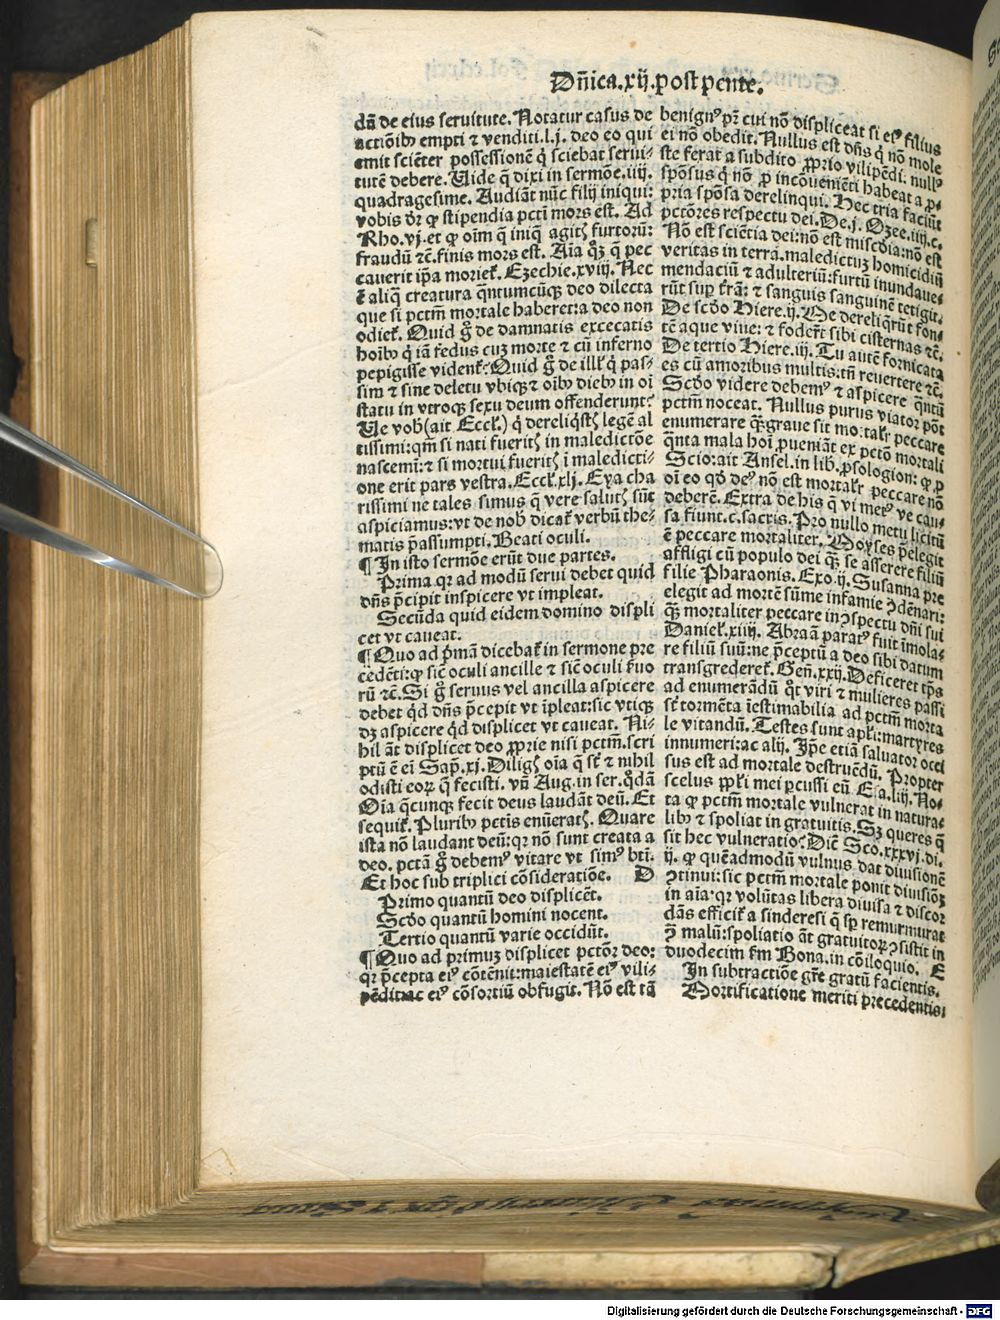 Dñica.xij.post pente.
dũ de eius seruitute. Notatur casus de
actiõibꝰ empti ⁊ venditi.l.j. deo eo qui
emit sciẽter possessionẽ q̇ sciebat serui⸗
tutẽ debere. Uide q̃ dixi in sermõe.iiij.
quadragesime. Audiãt nũc filij iniqui:
vobis dr̃ ꝙ stipendia pcti mors est. Ad
Rho.vj.et ꝙ oĩm q̃ iniq̃ agitꝭ furtorũ:
fraudũ ⁊c̃.finis mors est. Aĩa qꝫ̃ q̃ pec
cauerit ip̃a morieẗ. Ezechie.xviij. Nec
ẽ aliq̃ creatura q̃ntumcũqꝫ deo dilecta
que si pctm̃ mortale haberet:a deo non
odieẗ. Quid g̃ de damnatis excecatis
hoĩbꝰ q̇ iã fedus cuꝫ morte ⁊ cũ inferno
pepigisse videnẗ:Quid g̃ de illĩ q̇ pas⸗
sim ⁊ sine delectu vbiqꝫ ⁊ oĩbꝰ diebꝰ in oĩ
statu in vtroqꝫ sexu deum offenderunt?
Ue vob(ait Eccl̃.) q̇ dereliq̃stꝭ legẽ al
tissimi:qm̃ si nati fueritꝭ in maledictõe
nascemĩ:⁊ si mortui fueritꝭ ĩ maledicti⸗
one erit pars vestra.Eccl̃.xlj. Eya cha
rissimi ne tales simus q̃ vere salutꝭ sũt
aspiciamus:vt de nob dicaẗ verbũ the⸗
matis p̃assumpti. Beati oculi.
¶ In isto sermõe erũt due partes.
Prima.qr ad modũ serui debet quid
dñs p̃cipit inspicere vt impleat.
Secũda quid eidem domino displi
cet vt caueat.
¶ Quo ad p̃mã dicebaẗ in sermone pre
cedẽti:ꝙ sic̃ oculi ancille ⁊ sic̃ oculi ẜuo
rũ ⁊c̃. Si g̃ seruus vel ancilla aspicere
debet q̇d dñs p̃cepit vt ĩpleat:sic vtiqꝫ
dꝫ aspicere q̇d displicet vt caueat. Ni⸗
hil ãt displicet deo ꝓprie nisi pctm̃.scri
ptũ ẽ eĩ Sap̃.xj. Diligꝭ oĩa q̃ sũt ⁊ nihil
odisti eoꝝ q̃ fecisti. vñ Aug.in ser.q̇dã
Oĩa q̃cunqꝫ fecit deus laudãt deũ. Et
sequiẗ. Pluribꝰ pctĩs enũeratꝭ. Quare
ista nõ laudant deũ:qr nõ sunt creata a
deo. pctã g̃ debemꝰ vitare vt simꝰ btĩ.
Et hoc sub triplici cõsideratiõe. D
Primo quantũ deo displicẽt.
Scd̃o quantũ homini nocent.
Tertio quantũ varie occidũt.
¶ Quo ad primuꝫ displicet pctõr deo:
qr p̃cepta eiꝰ cõtẽnit:maiestatẽ eiꝰ vili⸗
pẽdit:ac eiꝰ cõsortiũ obfugit. Nõ est tã
benignꝰ pr̃ cui nõ displiceat si eꝰ filius
ei nõ obedit. Nullus est dñs q̇ nõ mole
ste ferat a subdito ꝓprio vilipẽdi. nullꝰ
spõsus q̇ nõ ꝓ incõueniẽti habeat a ꝓ⸗
pria spõsa derelinqui. Hec tria faciũt
pctõres respectu dei. De.j. Ozee.iiij.c.
Nõ est sciẽtia dei:nõ est miscd̃ia:nõ est
veritas in terra. maledictuꝫ homicidiũ
mendaciũ ⁊ adulteriũ:furtũ inundaue⸗
rũt suꝑ terrã: ⁊ sanguis sanguinẽ tetigit.
De scd̃o Hiere.ij. Me dereliq̃rũt fon⸗
tẽ aque viue: ⁊ foderũt sibi cisternas ⁊c̃.
De tertio Hiere.iij. Tu autẽ fornicata
es cũ amoribus multis:tñ reuertere ⁊c̃.
Scd̃o videre debemꝰ ⁊ aspicere q̃ntũ
pctm̃ noceat. Nullus purus viator põt
enumerare qꝫ̃graue sit mortaliter peccare
q̃nta mala hoĩ ꝓueniãt ex pctõ mortali
Scio:ait Ansel.in lib.ꝓsologion: ꝙ ꝓ
oĩ eo qd̃ deꝰ nõ est mortaliter peccare nõ
deberẽ. Extra de his q̃ vi metꝰ ve cau⸗
sa fiunt.c.sacris. Pro nullo metu licitũ
ẽ peccare mortaliter. Moyses p̃elegit
affligi cũ populo dei qꝫ̃ se asserere filiũ
filie Pharaonis. Exo.ij. Susanna pre
elegit ad mortẽ sũme infamie ↄdẽnari:
qꝫ̃ mortaliter peccare inↄspectu dñi sui
Danieł.xiiij. Abraã paratꝰ fuit ĩmola⸗
re filiũ suũ:ne p̃ceptũ a deo sibi datum
transgredereẗ. Geñ.xxij. Deficeret tp̃s
ad enumerãdũ qỏt viri ⁊ mulieres passi
sũt tormẽta ĩestimabilia ad pctm̃ morta
le vitandũ. Testes sunt apłi:martyres
innumeri:ac alij. Ip̃e etiã saluator occi
sus est ad mortale destruẽdũ. Propter
scelus ppłi mei percussi eũ. Esa.liij. No⸗
ta ꝙ pctm̃ mortale vulnerat in natura⸗
libꝰ ⁊ spoliat in gratuitis. Sꝫ queres q̃
sit hec vulneratio? Dic̃ Sco.xxxvj.di.
ij. ꝙ quẽadmodũ vulnus dat diuisionẽ
ↄtinui:sic pctm̃ mortale ponit diuisiõꝫ
in aĩa:qr volũtas libera diuisa ⁊ discor
dãs efficiẗ a sinderesi q̃ sꝑ remurmurat
ꝯ malũ:spoliatio ãt gratuitoꝝ ↄsistit in
duodecim ẜm Bona.in cõiloquio. E
In subtractiõe gr̃e gratũ facientis.
Mortificatione meriti precedentis:
Digitalisierung gefördert durch die Deutsche Forschungsgemeinschaft - DFG